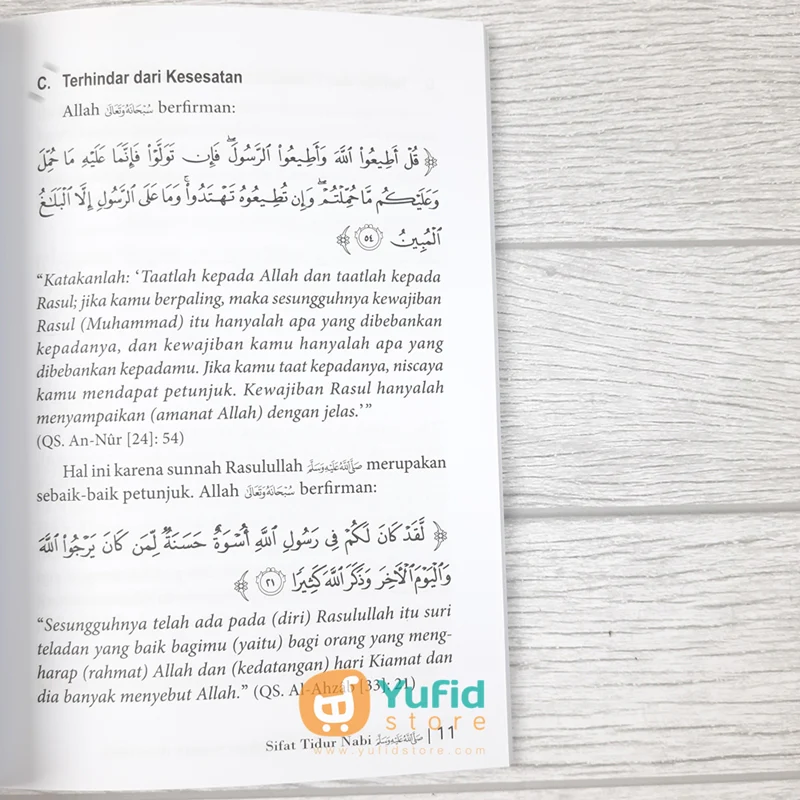 C. Terhindar dari Kesesatan
Allah سُبْحَانَهُ وَتَعَالَى berfirman:
﴿ قُلْ أَطِيعُوا۟ ٱللَّهَ وَأَطِيعُوا۟ ٱلرَّسُولَ ۖ فَإِن تَوَلَّوْا۟ فَإِنَّمَا عَلَيْهِ مَا حُمِّلَ
وَعَلَيْكُم مَّا حُمِّلْتُمْ ۖ وَإِن تُطِيعُوهُ تَهْتَدُوا۟ ۚ وَمَا عَلَى ٱلرَّسُولِ إِلَّا ٱلْبَلَـٰغُ
ٱلْمُبِينُ ٥٤ ﴾
“Katakanlah: ‘Taatlah kepada Allah dan taatlah kepada
Rasul; jika kamu berpaling, maka sesungguhnya kewajiban
Rasul (Muhammad) itu hanyalah apa yang dibebankan
kepadanya, dan kewajiban kamu hanyalah apa yang
dibebankan kepadamu. Jika kamu taat kepadanya, niscaya
kamu mendapat petunjuk. Kewajiban Rasul hanyalah
menyampaikan (amanat Allah) dengan jelas.’”
(QS. An-Nûr [24]: 54)
Hal ini karena sunnah Rasulullah صَلَّى اللَّهُ عَلَيْهِ وَسَلَّمَ merupakan
sebaik-baik petunjuk. Allah سُبْحَانَهُ وَتَعَالَى berfirman:
﴿ لَّقَدْ كَانَ لَكُمْ فِى رَسُولِ ٱللَّهِ أُسْوَةٌ حَسَنَةٌ لِّمَن كَانَ يَرْجُوا۟ ٱللَّهَ
وَٱلْيَوْمَ ٱلْـَٔاخِرَ وَذَكَرَ ٱللَّهَ كَثِيرًا ٢١ ﴾
“Sesungguhnya telah ada pada (diri) Rasulullah itu suri
teladan yang baik bagimu (yaitu) bagi orang yang meng-
harap (rahmat) Allah dan (kedatangan) hari Kiamat dan
dia banyak menyebut Allah.” (QS. Al-Ahzâb [33]: 21)
Yufid
store
www.yufidstore.com
Sifat Tidur Nabi صَلَّى اللَّهُ عَلَيْهِ وَسَلَّمَ | 11